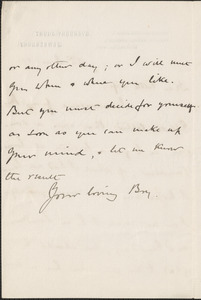 or any other day; or I will meet
you when & where you like.
But you must decide for yourself
as soon as you can make up
your mind, & let me know
the result
Your loving Boy.